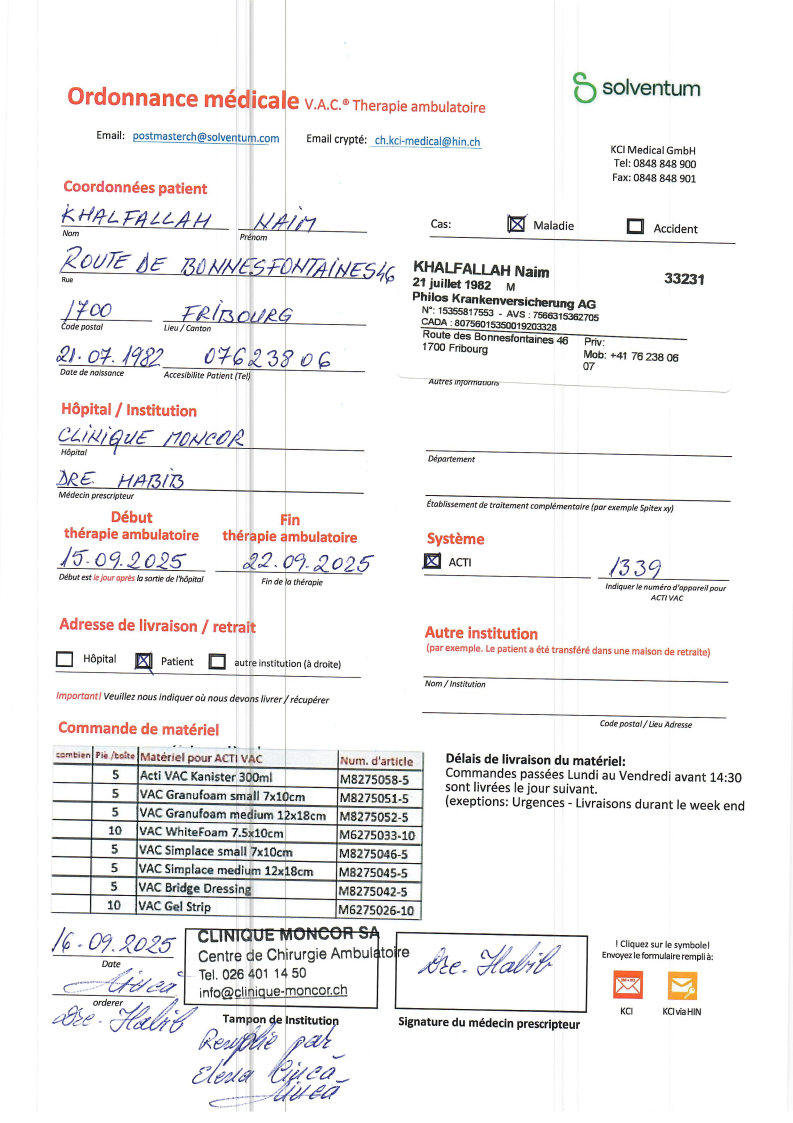 solventum
Ordonnance médicale V.A.C.® Therapie ambulatoire
Email: postmasterch@solventum.com Email crypté: ch.kci-medical@hin.ch
KCI Medical GmbH
Tel: 0848 848 900
Fax: 0848 848 901
Coordonnées patient
KHALFALLAH NAIM
Nom Prénom
Cas: Maladie Accident
ROUTE DE BONNESFONTAINES 46
Rue
KHALFALLAH Naim 33231
21 juillet 1982 M
Philos Krankenversicherung AG
N°: 15355817553 - AVS : 7566315362705
CADA : 80756015350019203328
Route des Bonnesfontaines 46 Priv:
1700 Fribourg Mob: +41 76 238 06
07
1700 FRIBOURG
Code postal Lieu / Canton
21.07.1982 076 238 06
Date de naissance Accesibilite Patient (Tel)
Autres informations
Hôpital / Institution
CLINIQUE MONCOR
Hôpital
Département
DRE. HABIB
Médecin prescripteur
Établissement de traitement complémentaire (par exemple Spitex xy)
Début
thérapie ambulatoire
Fin
thérapie ambulatoire
Système
15.09.2025 22.09.2025
ACTI 1339
Début est le jour après la sortie de l'hôpital Fin de la thérapie
Indiquer le numéro d'appareil pour
ACTI VAC
Adresse de livraison / retrait
Hôpital Patient autre institution (à droite)
Important! Veuillez nous indiquer où nous devons livrer / récupérer
Autre institution
(par exemple. Le patient a été transféré dans une maison de retraite)
Nom / Institution
Code postal / Lieu Adresse
Commande de matériel
combien Piè /boîte Matériel pour ACTI VAC Num. d'article
5 Acti VAC Kanister 300ml M8275058-5
5 VAC Granufoam small 7x10cm M8275051-5
5 VAC Granufoam medium 12x18cm M8275052-5
10 VAC WhiteFoam 7.5x10cm M6275033-10
5 VAC Simplace small 7x10cm M8275046-5
5 VAC Simplace medium 12x18cm M8275045-5
5 VAC Bridge Dressing M8275042-5
10 VAC Gel Strip M6275026-10
Délais de livraison du matériel:
Commandes passées Lundi au Vendredi avant 14:30
sont livrées le jour suivant.
(exeptions: Urgences - Livraisons durant le week end
16-09.2025
Date
Ciucă
orderer
Dre. Habib
CLINIQUE MONCOR SA
Centre de Chirurgie Ambulatoire
Tel. 026 401 14 50
info@clinique-moncor.ch
Tampon de Institution
Remplie par
Elena Ciucă
Ciucă
Dre. Habib
Signature du médecin prescripteur
! Cliquez sur le symbole!
Envoyez le formulaire rempli à:
KCI KCI via HIN